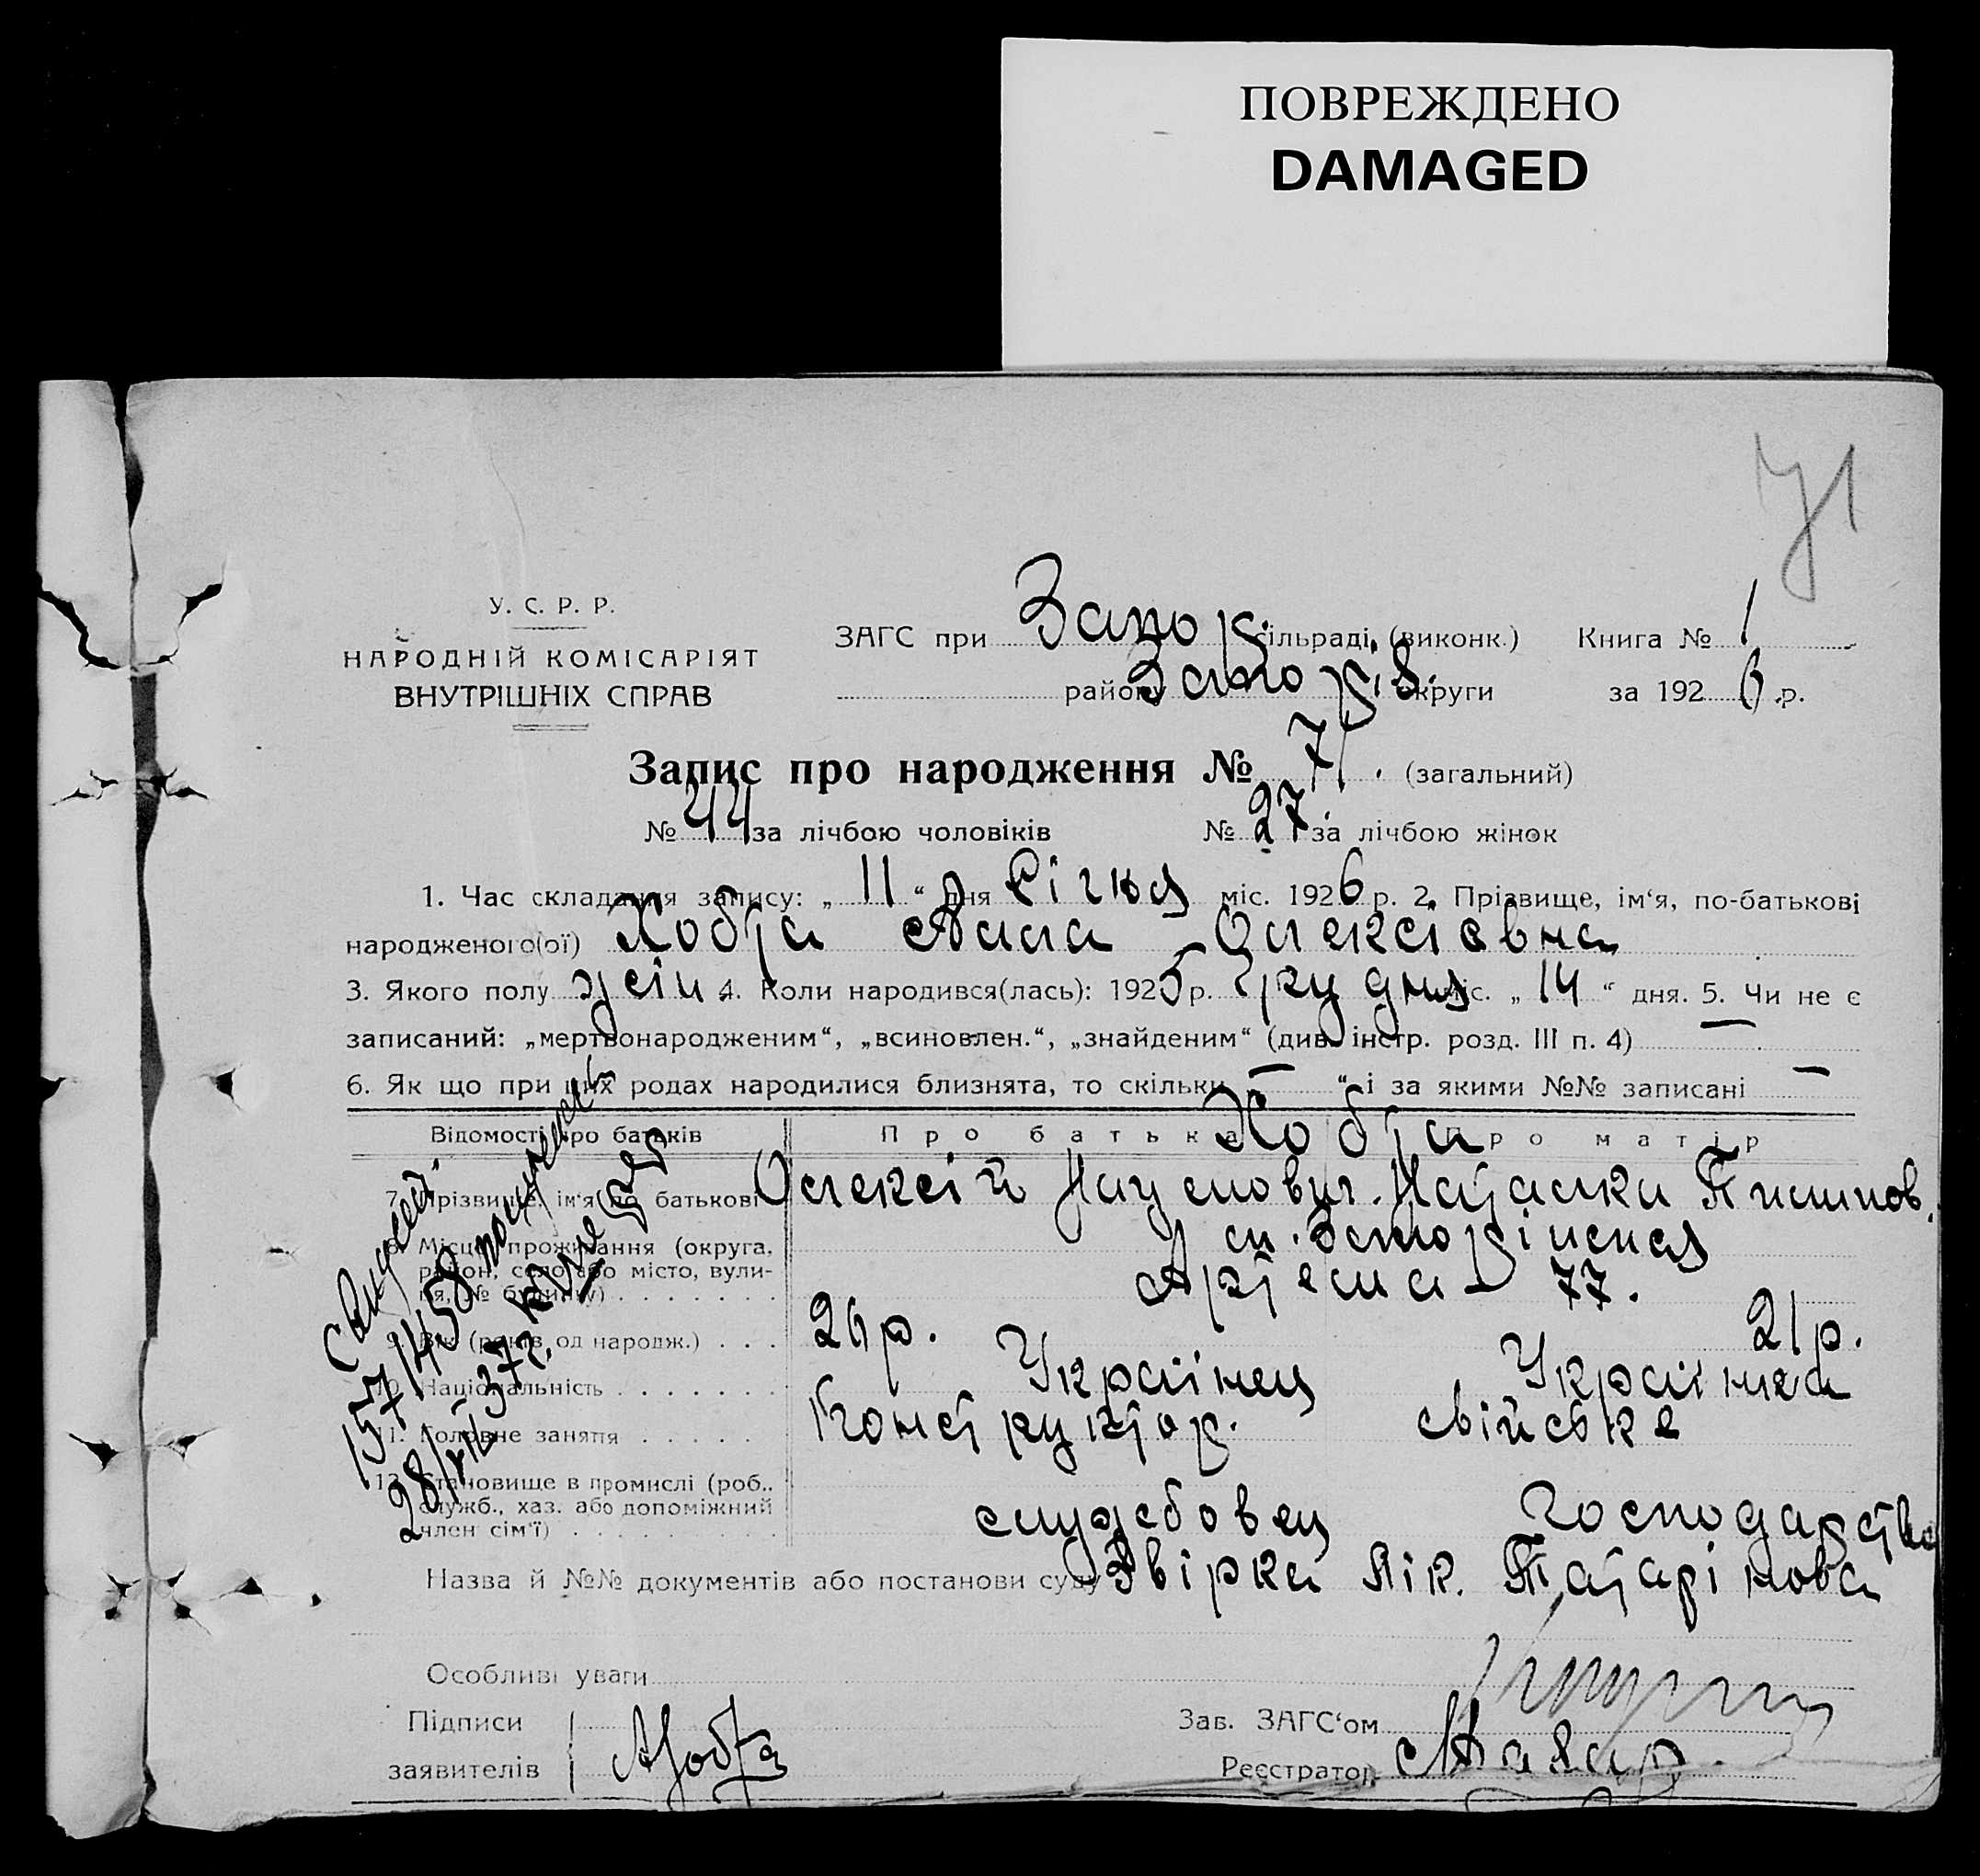 ПОВРЕЖДЕНО
DAMAGED
71
У. С. Р. Р.
НАРОДНІЙ КОМІСАРІЯТ
ВНУТРІШНІХ СПРАВ
ЗАГС при Запор. сільраді, (виконк.) Книга № 1
району Запоріз. округи за 1926 р.
Запис про народження № 71. (загальний)
№ 44 за лічбою чоловіків № 27 за лічбою жінок
1. Час складання запису: „ 11 “ дня Січня міс. 1926 р. 2. Прізвище, ім‘я, по-батькові
народженого(ої) Хобта Алла Олексієвна
3. Якого полу жін. 4. Коли народився(лась): 1925 р. Грудня міс. „ 14 “ дня. 5. Чи не є
записаний: „мертвонародженим“, „всиновлен.“, „знайденим“ (див. інстр. розд. III п. 4) —
6. Як що при цих родах народилися близнята, то скільки „ — “ і за якими №№ записані —
Відомості про батьків Про батька Про матір
Хобта
7. Прізвище, ім‘я по батькові Олексій Наумович. Наталка Пилипов.
8. Місце проживання (округа, район, село або місто, вулиця, № будинку)
ст. Запоріжжя
Артема 77.
9. Вік (років од народж.) 26 р. 21 р.
10. Національність Українец Українка
11. Головне заняття Конструктор. свійське
12. Становище в промислі (роб., служб., хаз. або допоміжний член сім‘ї) служебовец господарство
Назва й №№ документів або постанови суду Звірка Лік. Татарінова
Особливі уваги
Підписи
заявителів АХобта
Зав. ЗАГС‘ом
Реєстратор
28/XII 37г.